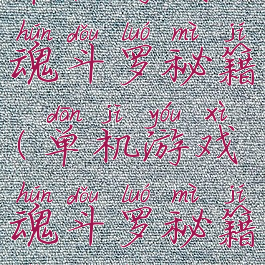 hún dǒu luó mì jí
魂斗罗秘籍
dān jī yóu xì
(单机游戏
hún dǒu luó mì jí
魂斗罗秘籍